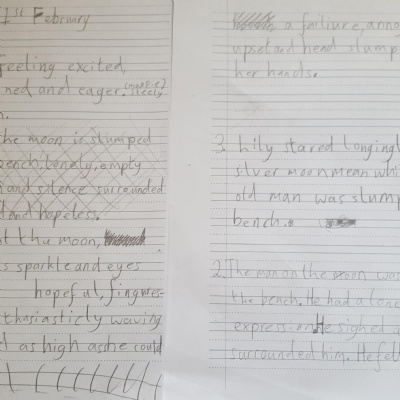 1st February
feeling excited,
ned and eager.
the moon is slumped
bench, lonely, empty
and silence surrounded
and hopeless.
t the moon,
s sparkle and eyes
hopeful, fingures
thusiasticly waving
d as high as he could
a failiure, anno
upset and head slump
her hands.
3. Lily stared longingl
silver moon mean whi
old man was slump
bench.
2. The man on the moon was
the bench. He had a lone
expression. He sighed a
surrounded him. He fel